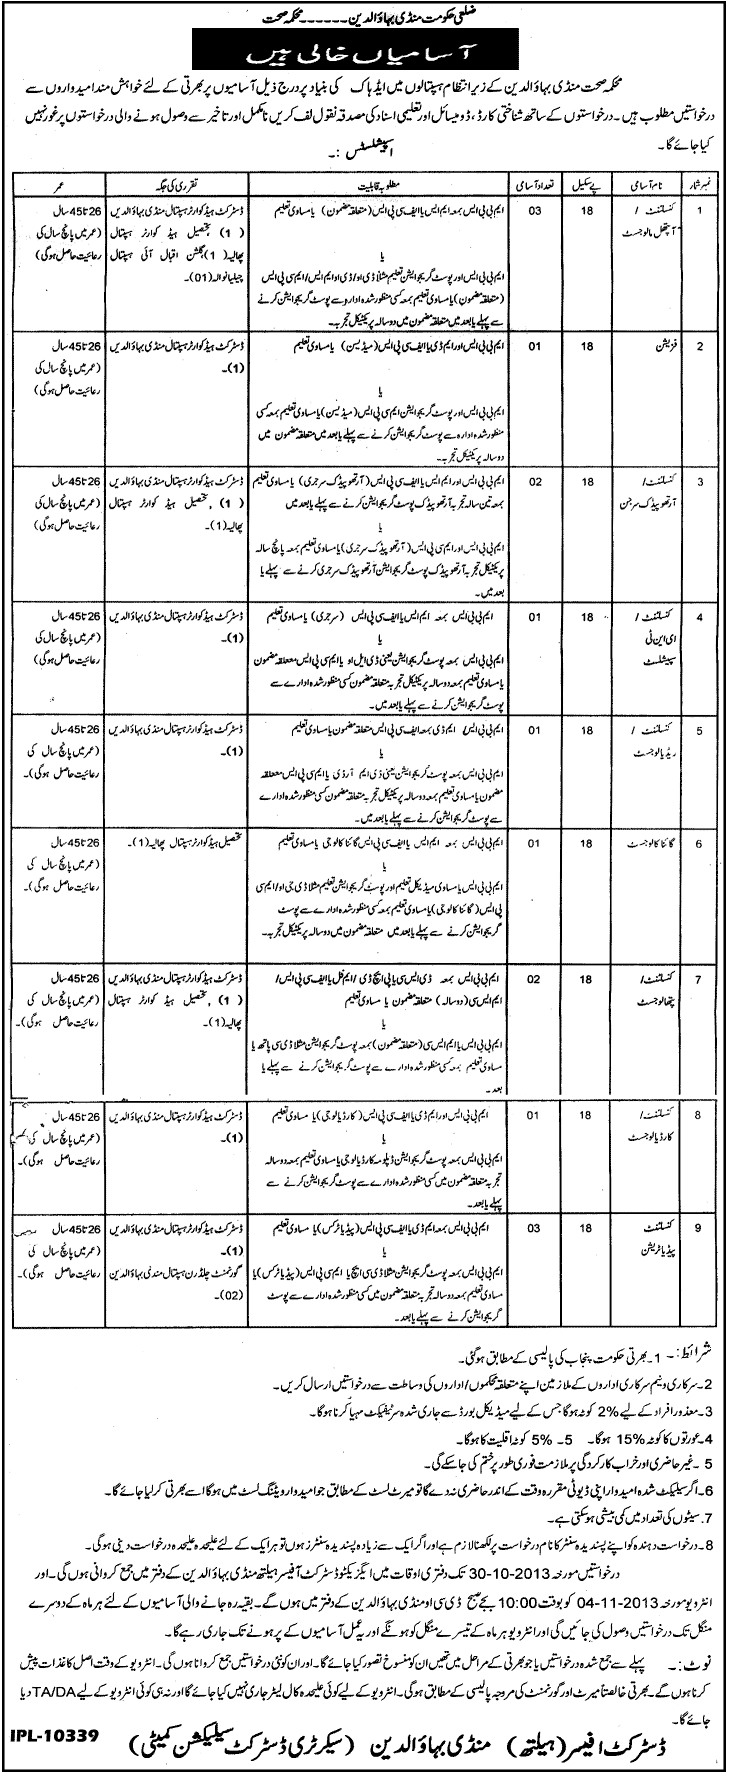 ضلعی حکومت منڈی بہاؤالدین۔۔۔۔۔۔ محکمہ صحت
آسامیاں خالی ہیں
محکمہ صحت منڈی بہاؤالدین کے زیر انتظام ہسپتالوں میں ایڈہاک کی بنیاد پر درج ذیل آسامیوں پر بھرتی کے لئے خواہش مند امیدواروں سے
درخواستیں مطلوب ہیں۔ درخواستوں کے ساتھ شناختی کارڈ، ڈومیسائل اور تعلیمی اسناد کی مصدقہ نقول لف کریں نامکمل اور تاخیر سے وصول ہونے والی درخواستوں پر غور نہیں
کیا جائے گا۔
اسپیشلسٹس :۔
نمبر شمار نام آسامی پے سکیل تعداد آسامی مطلوبہ قابلیت تقرری کی جگہ عمر
1 کنسلٹنٹ / آپتھل مالوجسٹ 18 03
ایم بی بی ایس بمعہ ایم ایس یا ایف سی پی ایس (متعلقہ مضمون) یا مساوی تعلیم
یا
ایم بی بی ایس اور پوسٹ گریجوایشن تعلیم مثلاً ڈی او/ڈی او ایم ایس/ایم سی پی ایس
(متعلقہ مضمون) یا مساوی تعلیم بمعہ کسی منظور شدہ ادارہ سے پوسٹ گریجوایشن کرنے
سے پہلے یا بعد میں متعلقہ مضمون میں دو سالہ پریکٹیکل تجربہ۔
ڈسٹرکٹ ہیڈ کوارٹر ہسپتال منڈی بہاؤالدین
(1) تحصیل ہیڈ کوارٹر ہسپتال
پھالیہ (1) گلشن اقبال آئی ہسپتال
چیلیانوالہ (01)۔
26 تا 45 سال
(عمر میں پانچ سال کی
رعائیت حاصل ہوگی)
2 فزیشن 18 01
ایم بی بی ایس اور ایم ڈی یا ایف سی پی ایس (میڈیسن) یا مساوی تعلیم
یا
ایم بی بی ایس اور پوسٹ گریجوایشن ایم سی پی ایس (میڈیسن) یا مساوی تعلیم بمعہ کسی
منظور شدہ ادارہ سے پوسٹ گریجوایشن کرنے سے پہلے یا بعد میں متعلقہ مضمون میں
دو سالہ پریکٹیکل تجربہ۔
ڈسٹرکٹ ہیڈ کوارٹر ہسپتال منڈی بہاؤالدین
(1)۔
26 تا 45 سال
(عمر میں پانچ سال کی
رعائیت حاصل ہوگی)
3 کنسلٹنٹ / آرتھوپیڈک سرجن 18 02
ایم بی بی ایس اور ایم ایس یا ایف سی پی ایس (آرتھوپیڈک سرجری) یا مساوی تعلیم
بمعہ تین سالہ تجربہ آرتھوپیڈک پوسٹ گریجوایشن کرنے سے پہلے یا بعد میں
یا
ایم بی بی ایس اور ایم سی پی ایس (آرتھوپیڈک سرجری) یا مساوی تعلیم بمعہ پانچ سالہ
پریکٹیکل تجربہ آرتھوپیڈک پوسٹ گریجوایشن آرتھوپیڈک سرجری کرنے سے پہلے یا
بعد میں۔
ڈسٹرکٹ ہیڈ کوارٹر ہسپتال منڈی بہاؤالدین
(1)، تحصیل ہیڈ کوارٹر ہسپتال
پھالیہ (1)۔
26 تا 45 سال
(عمر میں پانچ سال کی
رعائیت حاصل ہوگی)
4 کنسلٹنٹ / ای این ٹی سپیشلسٹ 18 01
ایم بی بی ایس بمعہ ایم ایس یا ایف سی پی ایس (سرجری) یا مساوی تعلیم
یا
ایم بی بی ایس بمعہ پوسٹ گریجوایشن یعنی ڈی ایل او یا ایم سی پی ایس متعلقہ مضمون
یا مساوی تعلیم بمعہ دو سالہ پریکٹیکل تجربہ متعلقہ مضمون کسی منظور شدہ ادارے سے
پوسٹ گریجوایشن کرنے سے پہلے یا بعد میں۔
ڈسٹرکٹ ہیڈ کوارٹر ہسپتال منڈی بہاؤالدین
(1)۔
26 تا 45 سال
(عمر میں پانچ سال کی
رعائیت حاصل ہوگی)
5 کنسلٹنٹ / ریڈیالوجسٹ 18 01
ایم بی بی ایس/ ایم ڈی بمعہ ایف سی پی ایس متعلقہ مضمون یا مساوی تعلیم
یا
ایم بی بی ایس بمعہ پوسٹ گریجوایشن یعنی ڈی ایم آر ڈی یا ایم سی پی ایس متعلقہ
مضمون یا مساوی تعلیم بمعہ دو سالہ پریکٹیکل تجربہ متعلقہ مضمون کسی منظور شدہ ادارے
سے پوسٹ گریجوایشن کرنے سے پہلے یا بعد میں۔
ڈسٹرکٹ ہیڈ کوارٹر ہسپتال منڈی بہاؤالدین
(1)۔
26 تا 45 سال
(عمر میں پانچ سال کی
رعائیت حاصل ہوگی)۔
6 گائناکالوجسٹ 18 01
ایم بی بی ایس بمعہ ایم ایس یا ایف سی پی ایس گائناکالوجی یا مساوی تعلیم
یا
ایم بی بی ایس یا مساوی میڈیکل تعلیم اور پوسٹ گریجوایشن تعلیم مثلاً ڈی جی او/ایم سی
پی ایس (گائناکالوجی) یا مساوی تعلیم بمعہ کسی منظور شدہ ادارے سے پوسٹ
گریجوایشن کرنے سے پہلے یا بعد میں متعلقہ مضمون میں دو سالہ پریکٹیکل تجربہ۔
تحصیل ہیڈ کوارٹر ہسپتال پھالیہ (1)۔
26 تا 45 سال
(عمر میں پانچ سال کی
رعائیت حاصل ہوگی)۔
7 کنسلٹنٹ / پتھالوجسٹ 18 02
ایم بی بی ایس بمعہ ڈی ایس سی یا پی ایچ ڈی/ ایم فل یا ایف سی پی ایس/
ایم ایس سی (دو سالہ) متعلقہ مضمون یا مساوی تعلیم
یا
ایم بی بی ایس یا ایم ایس سی (متعلقہ مضمون) بمعہ پوسٹ گریجوایشن مثلاً ڈی سی پاتھ یا
مساوی تعلیم بمعہ کسی منظور شدہ ادارے سے پوسٹ گریجوایشن کرنے سے پہلے یا
بعد۔
ڈسٹرکٹ ہیڈ کوارٹر ہسپتال منڈی بہاؤالدین
(1)، تحصیل ہیڈ کوارٹر ہسپتال
پھالیہ (1)۔
26 تا 45 سال
(عمر میں پانچ سال کی
رعائیت حاصل ہوگی)۔
8 کنسلٹنٹ / کارڈیالوجسٹ 18 01
ایم بی بی ایس اور ایم ڈی یا ایف سی پی ایس (کارڈیالوجی) یا مساوی تعلیم
یا
ایم بی بی ایس بمعہ پوسٹ گریجوایشن ڈپلومہ کارڈیالوجی یا مساوی تعلیم بمعہ دو سالہ
تجربہ متعلقہ مضمون میں کسی منظور شدہ ادارے سے پوسٹ گریجوایشن کرنے سے
پہلے یا بعد۔
ڈسٹرکٹ ہیڈ کوارٹر ہسپتال منڈی بہاؤالدین
(1)۔
26 تا 45 سال
(عمر میں پانچ سال کی
رعائیت حاصل ہوگی)۔
9 کنسلٹنٹ پیڈیاٹریشن 18 03
ایم بی بی ایس بمعہ ایم ڈی یا ایف سی پی ایس (پیڈیاٹرکس) یا مساوی تعلیم
یا
ایم بی بی ایس بمعہ پوسٹ گریجوایشن مثلاً ڈی سی ایچ یا ایم سی پی ایس (پیڈیاٹرکس) یا
مساوی تعلیم بمعہ دو سالہ تجربہ متعلقہ مضمون میں کسی منظور شدہ ادارے سے پوسٹ
گریجوایشن کرنے سے پہلے یا بعد۔
ڈسٹرکٹ ہیڈ کوارٹر ہسپتال منڈی بہاؤالدین
(1)۔
گورنمنٹ چلڈرن ہسپتال منڈی بہاؤالدین
(02)
26 تا 45 سال
(عمر میں پانچ سال کی
رعائیت حاصل ہوگی)۔
شرائط:۔ 1۔ بھرتی حکومت پنجاب کی پالیسی کے مطابق ہوگئی۔
2۔ سرکاری و نیم سرکاری اداروں کے ملازمین اپنے متعلقہ محکموں/اداروں کی وساطت سے درخواستیں ارسال کریں۔
3۔ معذور افراد کے لیے 2% کوٹہ ہوگا جس کے لیے میڈیکل بورڈ سے جاری شدہ سرٹیفکیٹ مہیا کرنا ہوگا۔
4۔ عورتوں کا کوٹہ 15% ہوگا۔ 5۔ 5% کوٹہ اقلیت کا ہوگا۔
5۔ غیر حاضری اور خراب کارکردگی پر ملازمت فوری طور پر ختم کی جا سکے گی۔
6۔ اگر سلیکٹ شدہ امیدوار اپنی ڈیوٹی مقررہ وقت کے اندر حاضری نہ دے گا تو میرٹ لسٹ کے مطابق جو امیدوار ویٹنگ لسٹ میں ہوگا اسے بھرتی کر لیا جائے گا۔
7۔ سیٹوں کی تعداد میں کمی بیشی ہو سکتی ہے۔
8۔ درخواست دہندہ کو اپنے پسندیدہ سنٹر کا نام درخواست پر لکھنا لازم ہے اور اگر ایک سے زیادہ پسندیدہ سنٹرز ہوں تو ہر ایک کے لئے علیحدہ علیحدہ درخواست دینی ہوگی۔
درخواستیں مورخہ 30-10-2013 تک دفتری اوقات میں ایگزیکٹو ڈسٹرکٹ آفیسر ہیلتھ منڈی بہاؤالدین کے دفتر میں جمع کروانی ہوں گی۔ اور
انٹرویو مورخہ 04-11-2013 کو بوقت 10:00 بجے صبح ڈی سی او منڈی بہاؤالدین کے دفتر میں ہوں گے۔ بقیہ رہ جانے والی آسامیوں کے لئے ہر ماہ کے دوسرے
منگل تک درخواستیں وصول کی جائیں گی اور انٹرویو ہر ماہ کے تیسرے منگل کو ہونگے اور یہ عمل آسامیوں کے پر ہونے تک جاری رہے گا۔
نوٹ:۔ پہلے سے جمع شدہ درخواستیں یا جو بھرتی کے مراحل میں تھیں ان کو منسوخ تصور کیا جائے گا۔ اور ان کو نئی درخواستیں جمع کروانا ہوں گی۔ انٹرویو کے وقت اصل کاغذات پیش
کرنا ہوں گے۔ بھرتی خالصتاً میرٹ اور گورنمنٹ کی مروجہ پالیسی کے مطابق ہوگی۔ انٹرویو کے لیے کوئی علیحدہ کال لیٹر جاری نہیں کیا جائے گا اور نہ ہی کوئی انٹرویو کے لیے TA/DA دیا
جائے گا۔
ڈسٹرکٹ آفیسر (ہیلتھ) منڈی بہاؤالدین (سیکرٹری ڈسٹرکٹ سلیکشن کمیٹی)
IPL-10339